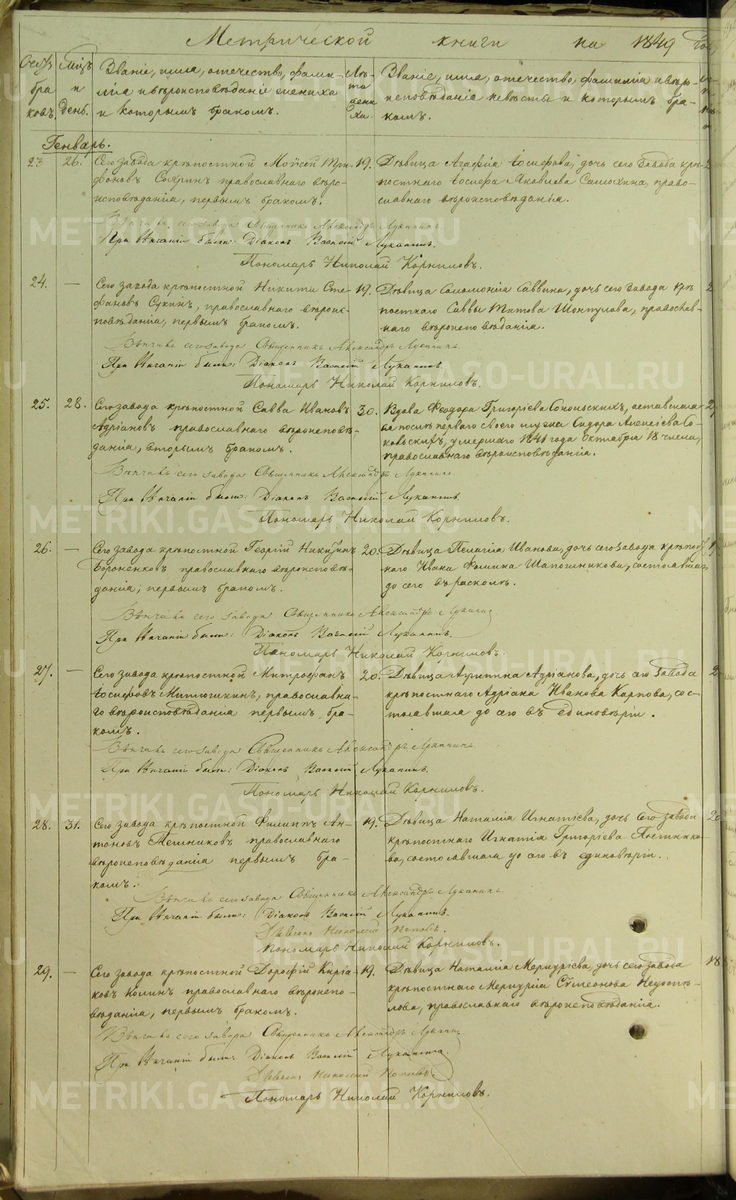 Метрической книги на 1849 год
Счетъ браковъ.
Мѣцъ и день.
Званіе, имя, отечество, фамилія и вѣроисповѣданіе жениха и которымъ бракомъ.
Лѣта жениха.
Званіе, имя, отечество, фамилія и вѣроисповѣданіе невѣсты и которымъ бракомъ.
Генварь.
23 26. Сего завода крѣпостной Мойсей Три-
фоновъ православнаго вѣро-
исповѣданія, первымъ бракомъ.
19.
Дѣвица Агафія Іосифова, дочь сего завода крѣ-
постнаго Іосифа Яковлева Самохина, право-
славнаго вѣроисповѣданія.
Вѣнчалъ сего завода Священникъ Александръ Луканинъ.
При вѣнчаніи были: Діаконъ Василій Луканинъ.
Пономарь Николай Корниловъ.
24. — Сего завода крѣпостной Никита Сте-
фановъ Сухинъ, православнаго вѣроис-
повѣданія, первымъ бракомъ.
19.
Дѣвица Соломонія Саввина, дочь сего завода крѣ-
постнаго Саввы Титова православ-
наго вѣроисповѣданія.
Вѣнчалъ сего завода Священникъ Александръ Луканинъ.
При вѣнчаніи были: Діаконъ Василій Луканинъ.
Пономарь Николай Корниловъ.
25. 28. Сего завода крѣпостной Савва Ивановъ
Адріановъ православнаго вѣроисповѣ-
данія, вторымъ бракомъ.
30.
Вдова Феодора Григорьева оставшая-
ся послѣ перваго своего мужа Сидора Алексѣева
умершаго 1841 года Октября 18 числа,
православнаго вѣроисповѣданія.
Вѣнчалъ сего завода Священникъ Александръ Луканинъ
При вѣнчаніи были: Діаконъ Василій Луканинъ.
Пономарь Николай Корниловъ.
26. — Сего завода крѣпостной Георгій Никитинъ
православнаго вѣроисповѣ-
данія, первымъ бракомъ.
20.
Дѣвица Пелагія Иванова, дочь сего завода крѣпост-
наго Ивана Фомина Шапошникова, состоявшая
до сего въ расколѣ.
Вѣнчалъ сего завода Священникъ Александръ Луканинъ
При вѣнчаніи были: Діаконъ Василій Луканинъ.
Пономарь Николай Корниловъ.
27. — Сего завода крѣпостной Митрофанъ
Іосифовъ Митюшкинъ, православна-
го вѣроисповѣданія первымъ бра-
комъ.
20.
Дѣвица Адріанова, дочь сего завода
крѣпостнаго Адріана Иванова Карпова, со-
стоявшая до сего въ единовѣріи.
Вѣнчалъ сего завода Священникъ Александръ Луканинъ
При вѣнчаніи были: Діаконъ Василій Луканинъ.
Пономарь Николай Корниловъ.
28. 31. Сего завода крѣпостной Филиппъ Ан-
тоновъ православнаго
вѣроисповѣданія первымъ бра-
комъ.
19.
Дѣвица Наталія Игнатіева, дочь сего завода
крѣпостнаго Игнатія Григорьева
состоявшая до сего въ единовѣріи.
20
Вѣнчалъ сего завода Священникъ Александръ Луканинъ
При вѣнчаніи были: Діаконъ Василій Луканинъ.
Николай Поповъ.
Пономарь Николай Корниловъ.
29. — Сего завода крѣпостной Дорофій
православнаго вѣроиспо-
вѣданія, первымъ бракомъ.
19.
Дѣвица Наталія Меркуріева, дочь сего завода
крѣпостнаго Меркурія Сѵмеонова
православнаго вѣроисповѣданія.
18
Вѣнчалъ сего завода Священникъ Александръ Луканинъ
При вѣнчаніи были: Діаконъ Василій Луканинъ.
Николай Поповъ.
Пономарь Николай Корниловъ.
METRIKI.GASO-URAL.RU